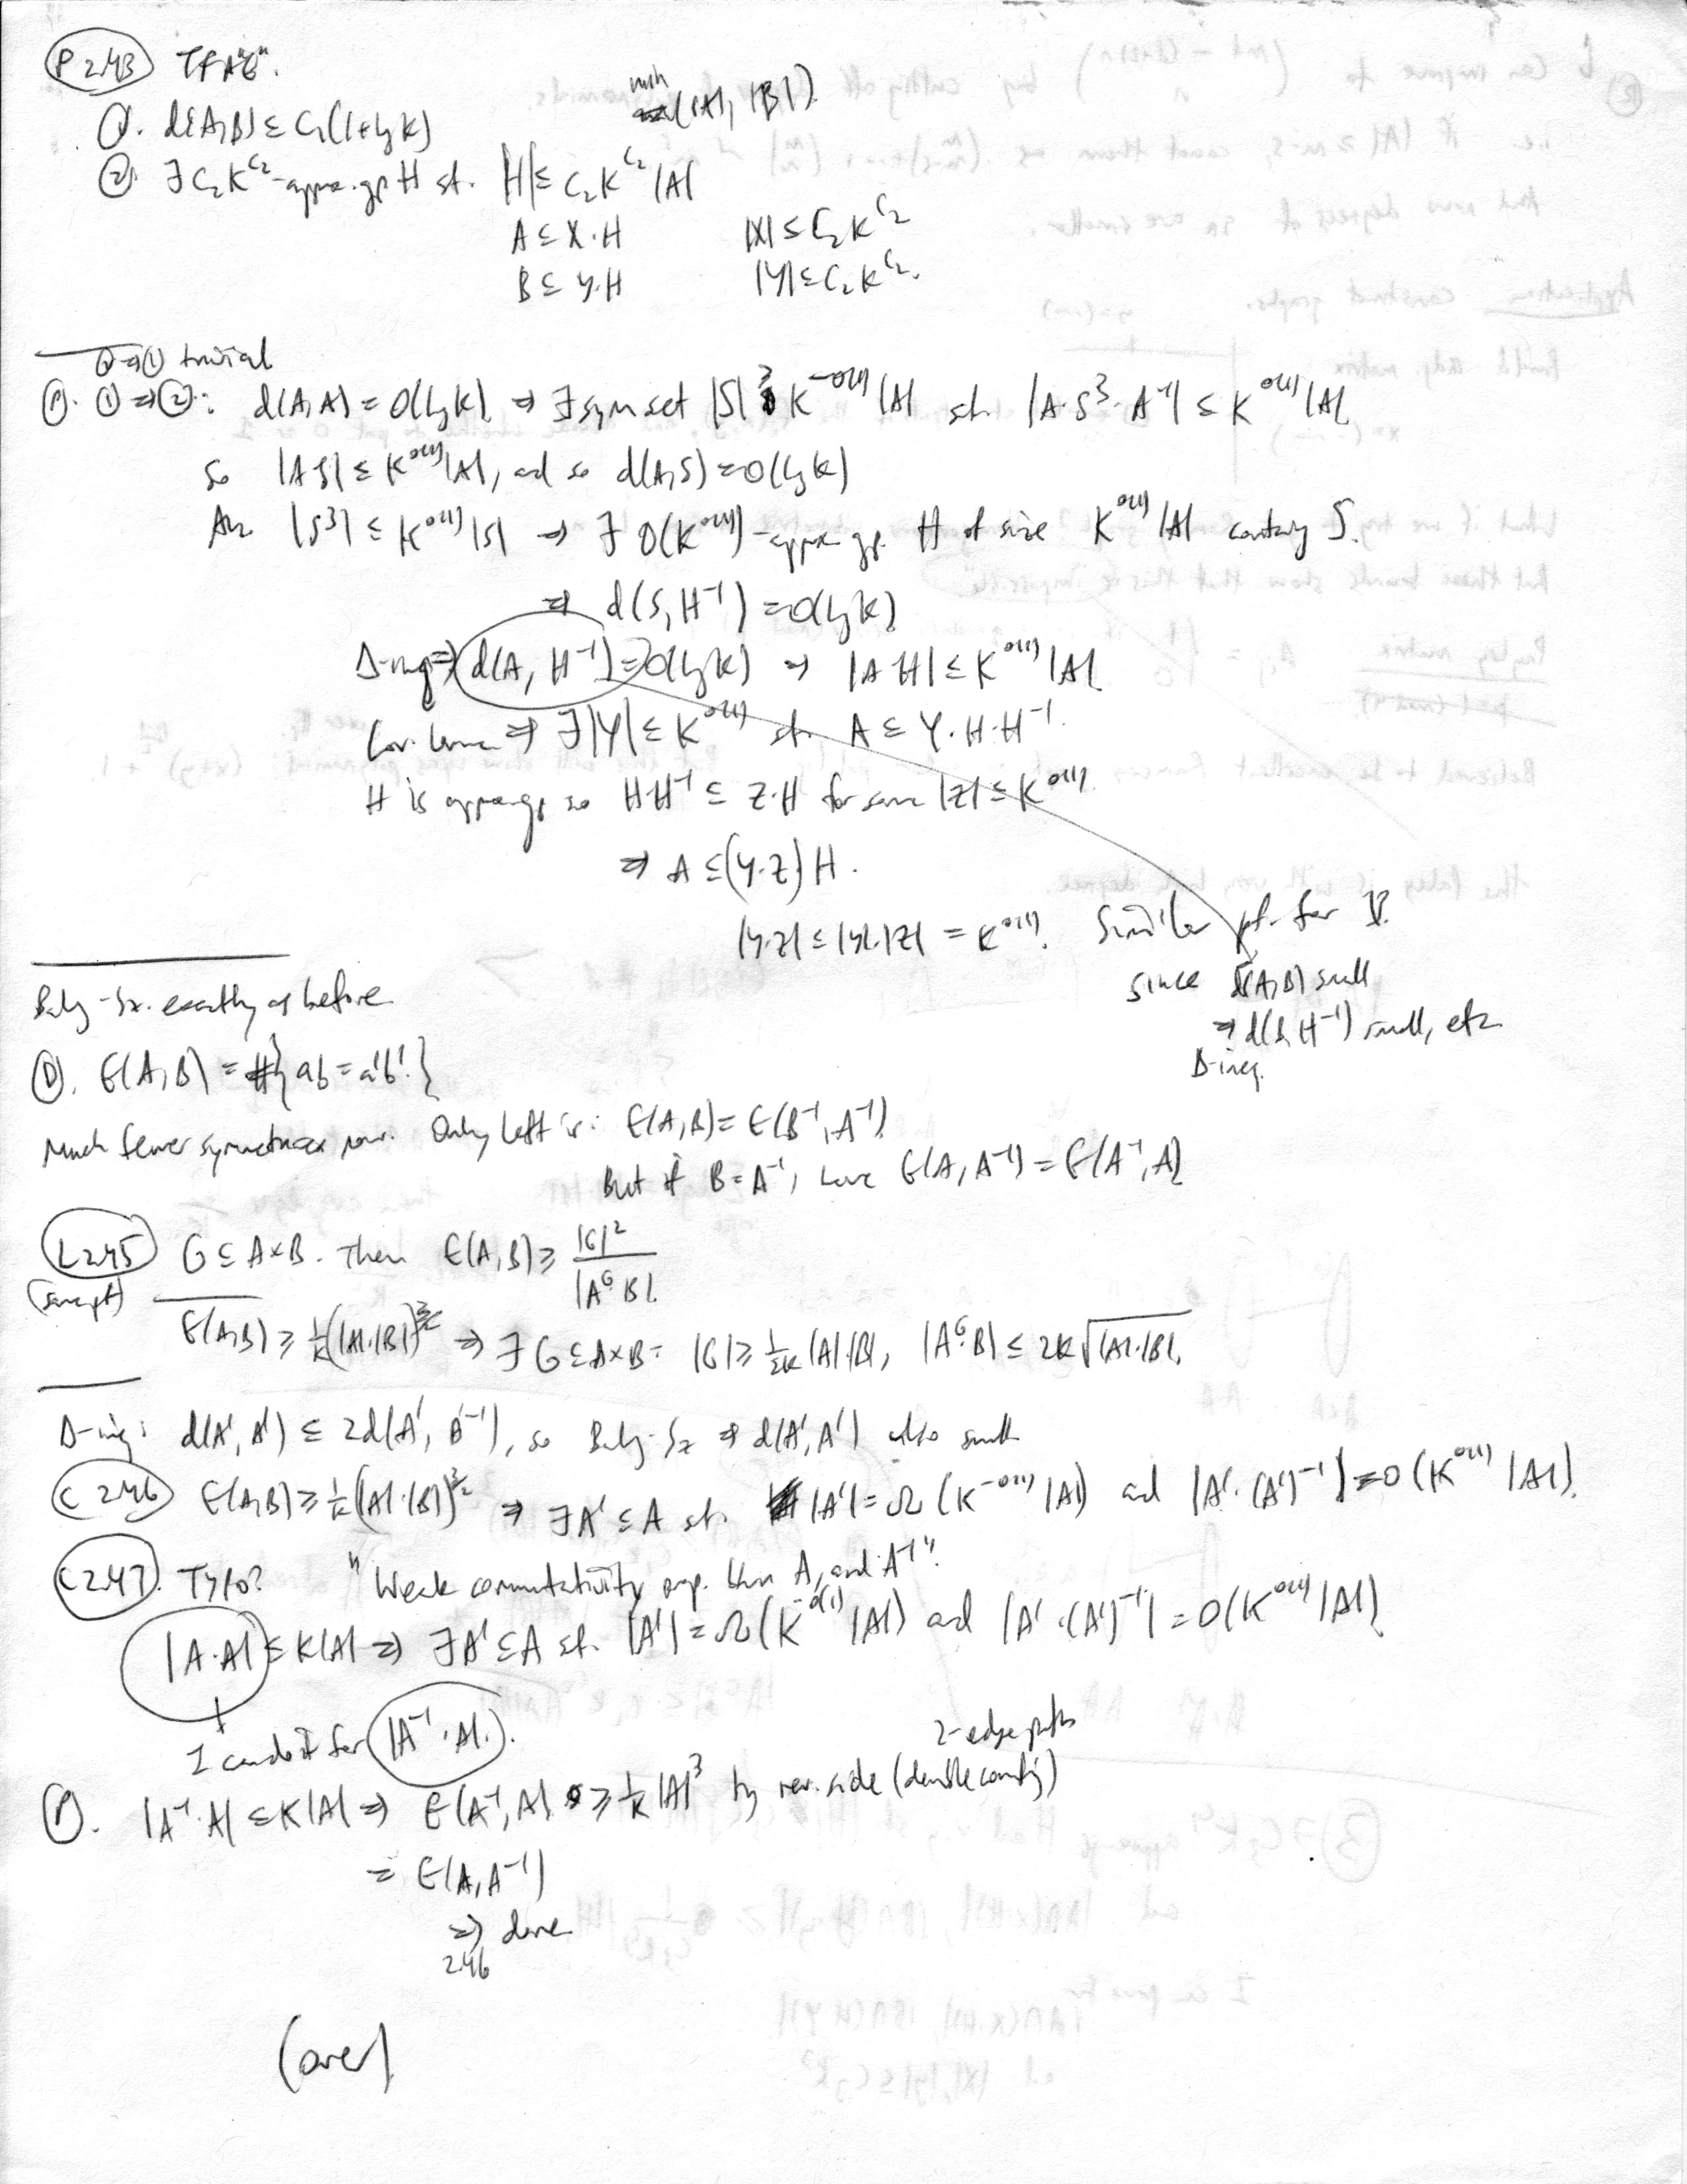 P 2.43 TFA"E".
①. d(A,B) ≤ C₁(1+log K)
min(|A|, |B|)
② ∃ C₂K^{C₂}-approx. gp H st. |H| ≤ C₂K^{C₂}|A|
A ⊆ X·H |X| ≤ C₂K^{C₂}
B ⊆ Y·H |Y| ≤ C₂K^{C₂}.
②⇒① trivial
Ⓟ. ①⇒②: d(A,A) = O(log K) ⇒ ∃ sym set |S| ≥ K^{-O(1)}|A| st. |A·S³·A⁻¹| ≤ K^{O(1)}|A|
So |AS| ≤ K^{O(1)}|A|, and so d(A,S) = O(log K)
Also |S³| ≤ K^{O(1)}|S| ⇒ ∃ O(K^{O(1)})-approx gp. H of size K^{O(1)}|A| containing S.
⇒ d(S, H⁻¹) = O(log K)
Δ-ineq ⇒ d(A, H⁻¹) = O(log K) ⇒ |A·H| ≤ K^{O(1)}|A|
Cov. lemma ⇒ ∃|Y| ≤ K^{O(1)} st. A ⊆ Y·H·H⁻¹.
H is approx gp so H·H⁻¹ ⊆ Z·H for some |Z| ≤ K^{O(1)}.
⇒ A ⊆ (Y·Z) H.
|Y·Z| ≤ |Y|·|Z| = K^{O(1)}. Similar pf. for B.
since d(A,B) small
⇒ d(B, H⁻¹) small, etc
Δ-ineq.
Balog-Sz. exactly as before
Ⓓ. E(A,B) = #{ab = a'b'}
Much fewer symmetries now. Only left is: E(A,B) = E(B⁻¹,A⁻¹)
But if B = A⁻¹, have E(A,A⁻¹) = E(A⁻¹,A)
L 2.45 G ⊆ A×B. Then E(A,B) ≥ |G|² / |A^G·B|.
(same pf)
E(A,B) ≥ 1/K (|A|·|B|)^{3/2} ⇒ ∃ G ⊆ A×B: |G| ≥ 1/2K |A|·|B|, |A^G·B| ≤ 2K√|A|·|B|.
Δ-ineq: d(A',A') ≤ 2d(A', B⁻¹), so Balog-Sz ⇒ d(A',A') also small
C 2.46 E(A,B) ≥ 1/K (|A|·|B|)^{3/2} ⇒ ∃A' ⊆ A st. |A'| = Ω(K^{-O(1)}|A|) and |A'·(A')⁻¹| = O(K^{O(1)}|A|).
C 2.47. Typo? "Weak commutativity prop. btwn A, and A⁻¹".
|A·A| ≤ K|A| ⇒ ∃A' ⊆ A st. |A'| = Ω(K^{-O(1)}|A|) and |A'·(A')⁻¹| = O(K^{O(1)}|A|)
I can do it for |A⁻¹·A|.
2-edge paths
Ⓟ. |A⁻¹·A| ≤ K|A| ⇒ E(A⁻¹,A) ≥ 1/K |A|³ by rev. side (double counting)
= E(A,A⁻¹)
⇒ done
2.46
(over)